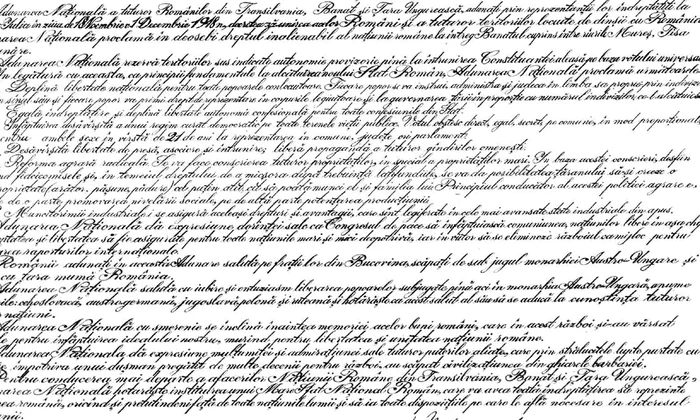 Adunarea Națională a tuturor Românilor din Transilvania, Banat și Țara Ungurească, adunați prin reprezentanții lor îndreptățiți la
Iulia în ziua de 18 Noembrie 1 Decembrie 1918, Românilor și a tuturor teritoriilor locuite de dînșii cu România
area Națională proclamă îndeosebi dreptul inalienabil al națiunii române la întreg Banatul cuprins între rîurile Mureș, Tisa
unăre.
Adunarea Națională rezervă teritoriilor sus indicate autonomie provizorie pînă la întrunirea Constituantei aleasă pe baza votului universal
În legătură cu aceasta, ca principii fundamentale la alcătuirea noului Stat Român, Adunarea Națională proclamă următoarele
Deplină libertate națională pentru toate popoarele conlocuitoare. Fiecare popor se va instrui, administra și judeca în limba sa proprie prin indivizi
n sînul său și fiecare popor va primi drept de reprezentare în corpurile legiuitoare și la guvernarea țării în proporție cu numărul indivizilor ce-l alcătuiesc
Egală îndreptățire și deplină libertate autonomă confesională pentru toate confesiunile din Stat.
Înfăptuirea desăvîrșită a unui regim curat democratic pe toate terenele vieții publice. Votul obștesc, direct, egal, secret, pe comune, în mod proporțional,
tru ambele sexe, în vîrstă de 21 de ani la reprezentarea în comune, județe ori parlament.
Desăvîrșită libertate de presă, asociere și întrunire; liberă propagandă a tuturor gîndirilor omenești.
Reforma agrară radicală. Se va face conscrierea tuturor proprietăților, în special a proprietăților mari. În baza acestei conscrieri, desființ
nd fideicomisele și, în temeiul dreptului de a micșora după trebuință latifundiile, se va da posibilitatea țăranului să-și creeze o
oprietate (arător, pășune, pădure) cel puțin atît cît să poată munci el și familia lui. Principiul conducător al acestei politici agrare e
de o parte promovarea nivelării sociale, pe de altă parte potențarea producțiunii.
Muncitorimii industriale i se asigură aceleași drepturi și avantagii, care sînt legiferate în cele mai avansate state industriale din apus.
Adunarea Națională dă expresiune dorinței sale ca Congresul de pace să înfăptuiască comuniunea națiunilor libere în așa chip
eptatea și libertatea să fie asigurate pentru toate națiunile mari și mici deopotrivă, iar în viitor să se elimineze războiul ca mijloc pentru
area raporturilor internaționale.
Românii adunați în această Adunare salută pe frații lor din Bucovina, scăpați de sub jugul monarhiei Austro-Ungare și
cu țara mumă România.
Adunarea Națională salută cu iubire și entuziasm liberarea popoarelor subjugate pînă aci în monarhia Austro-Ungară, anume
ile: cehoslovacă, austro-germană, jugoslavă, polonă și ruteană și hotărăște ca acest salut al său să se aducă la cunoștința tuturor
r națiuni.
Adunarea Națională cu smerenie se închină înaintea memoriei acelor bravi români, care în acest război și-au vărsat
le pentru înfăptuirea idealului nostru, murind pentru libertatea și unitatea națiunii române.
Adunarea Națională dă expresiune mulțumitei și admirațiunei sale tuturor puterilor aliate, care prin strălucitele lupte purtate cu
re împotriva unui dușman pregătit de multe decenii pentru război, au scăpat civilizațiunea din ghiarele barbariei.
Pentru conducerea mai departe a afacerilor Națiunii Române din Transilvania, Banat și Țara Ungurească,
area Națională hotărăște instituirea unui Mare Sfat Național Român, care va avea toată îndreptățirea să reprezinte
ea română, oricînd și pretutindeni față de toate națiunile lumii și să ia toate dispozițiile pe care le află necesare în interesul
unii.